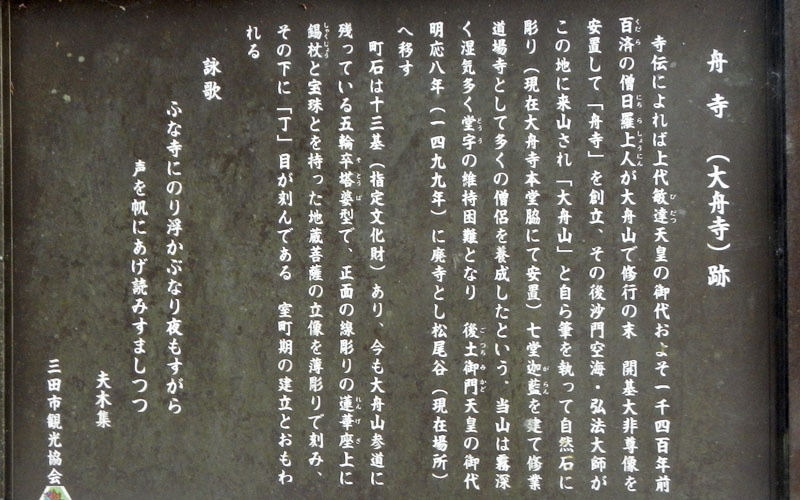 舟寺 (大舟寺)跡
寺伝によれば上代敏達天皇の御代およそ一千四百年前
百済の僧日羅上人が大舟山で修行の末 開基大非尊像を
安置して「舟寺」を創立、その後沙門空海・弘法大師が
この地に来山され「大舟山」と自ら筆を執って自然石に
彫り(現在大舟寺本堂脇にて安置)七堂迦藍を建て修業
道場寺として多くの僧侶を養成したという。当山は霧深
く湿気多く堂宇の維持困難となり 後土御門天皇の御代
明応八年(一四九九年)に廃寺とし松尾谷(現在場所)
へ移す
町石は十三基(指定文化財)あり、今も大舟山参道に
残っている五輪卒塔婆型で、正面の線彫りの蓮華座上に
錫杖と宝珠とを持った地蔵菩薩の立像を薄彫りで刻み、
その下に「丁」目が刻んである 室町期の建立とおもわ
れる
詠歌
ふな寺にのり浮かぶなり夜もすがら
声を帆にあげ読みすましつつ
夫木集
三田市観光協会